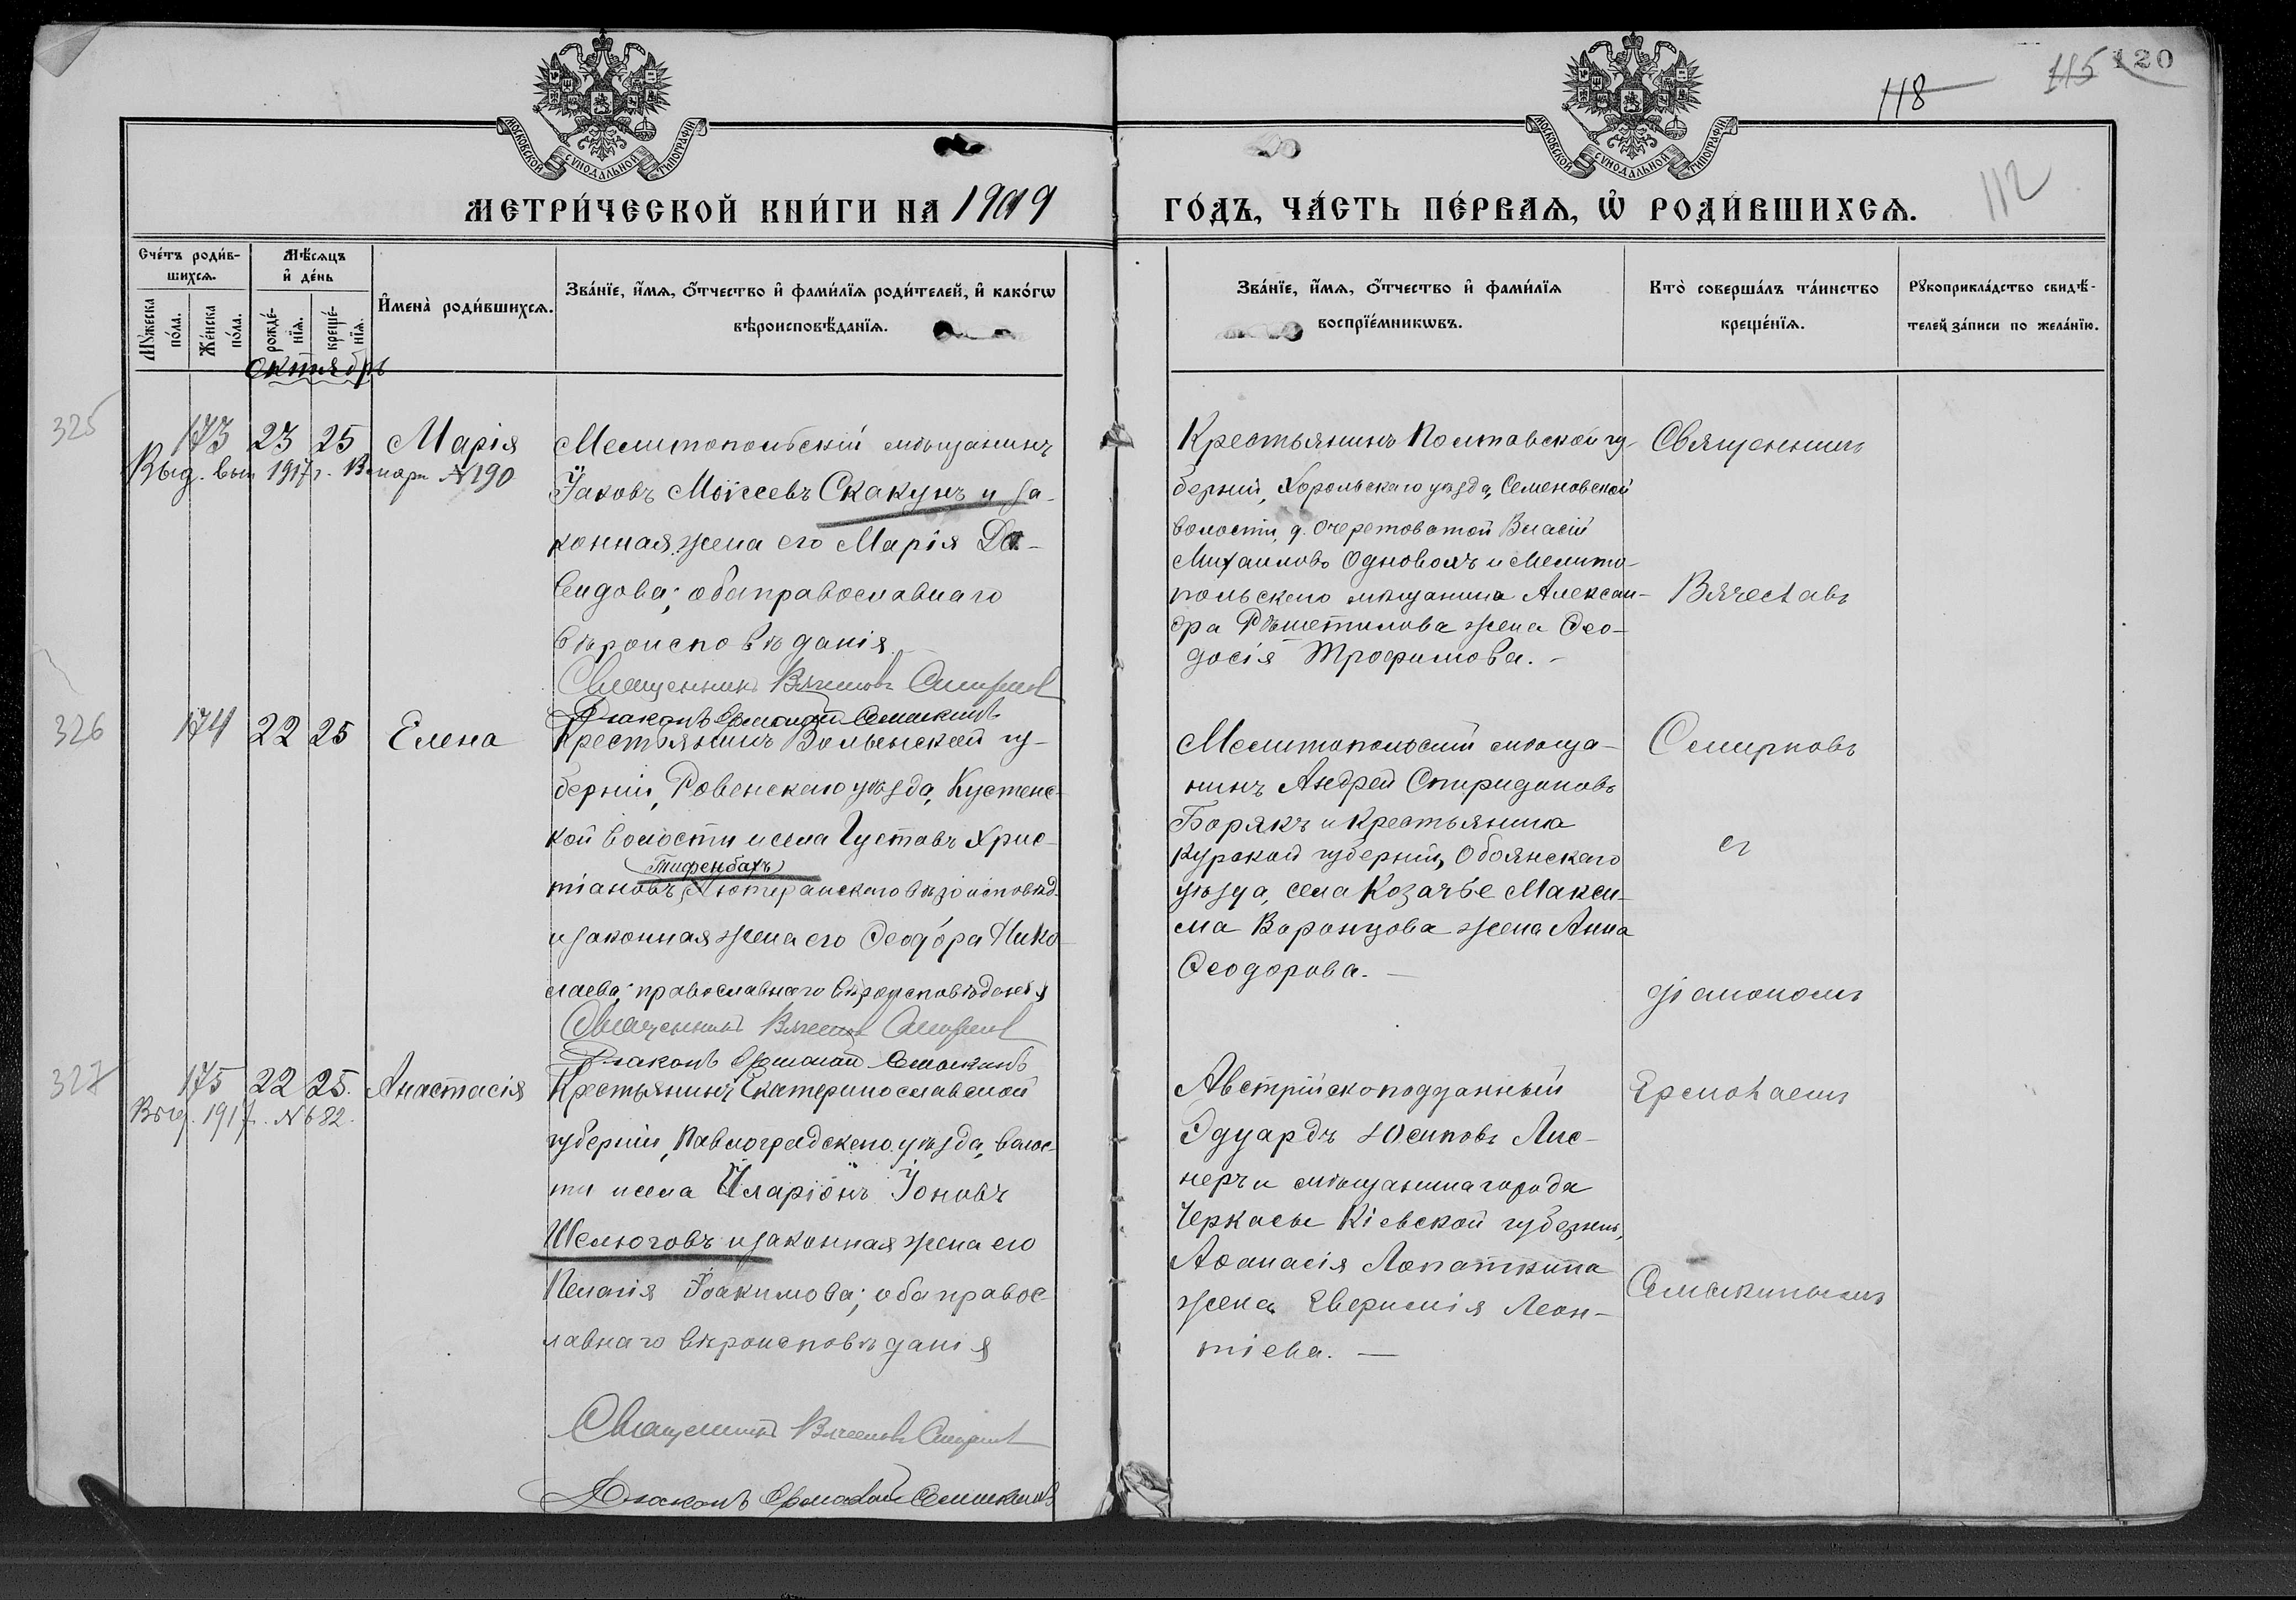 118
115
120
112
МОСКОВСКОЙ СѴНОДАЛЬНОЙ ТИПОГРАФІИ
МОСКОВСКОЙ СѴНОДАЛЬНОЙ ТИПОГРАФІИ
МЕТРИ́ЧЕСКОЙ КНИ́ГИ НА 1909
ГО́ДЪ, ЧА́СТЬ ПЕ́РВАѦ, Ѡ҆ РОДИ́ВШИХСѦ.
Сче́тъ роди́в-
шихсѧ.
Мꙋ́жеска
по́ла.
Же́нска
по́ла.
Мѣ́сѧцъ
и҆ де́нь
рожде́-
нїѧ.
креще́-
нїѧ.
И҆мена̀ роди́вшихсѧ.
Зва́нїе, и҆́мѧ, ѻ҆́тчество и҆ фами́лїѧ роди́телей, и҆ како́гѡ
вѣроисповѣ́данїѧ.
Зва́нїе, и҆́мѧ, ѻ҆́тчество и҆ фами́лїѧ
воспрїе́мникѡвъ.
Кто̀ соверша́лъ та́инство
креще́нїѧ.
Рꙋкоприкла́дство свидѣ́-
телей за́писи по жела́нїю.
Октябрь
325
173 23 25 Марія
Выд. вып 1917 г. № 190
Мелитопольскій мѣщанинъ
Іаковъ Моісеевъ Скакунъ и за-
конная жена его Марія Да-
видова; оба православнаго
вѣроисповѣданія.
Священникъ Вячеславъ Смирновъ
Діаконъ Ермолай Семыкинъ
Крестьянинъ Полтавской гу-
берніи, Хорольскаго уѣзда, Семеновской
волости, д. Очеретоватой Власій
Михаиловъ Одноволъ и Мелито-
польскаго мѣщанина Алексан-
дра Рѣшетилова жена Ѳео-
досія Трофимова. -
Священникъ
Вячеславъ
326
174 22 25 Елена
Крестьянинъ Волынской гу-
берніи, Ровенскаго уѣзда, Кустенс-
кой волости и села Густавъ Хрис-
(Тифенбахъ)
тіановъ, Лютеранскаго вѣроисповѣд.
и законная жена его Ѳеодора Нико-
лаева; православнаго вѣроисповѣданія
Священникъ Вячеславъ Смирновъ
Діаконъ Ермолай Семыкинъ
Мелитопольскій мѣща-
нинъ Андрей Спиридоновъ
Борякъ и крестьянина
Курской губерніи, Обоянскаго
уѣзда, села Козачье Макси-
ма Воронцова жена Анна
Ѳеодорова. —
Смирновъ
съ
діакономъ
327
175 22 25. Анастасія
Выд. 1917 г. № 682.
Крестьянинъ Екатеринославской
губерніи, Павлоградскаго уѣзда, волос-
ти и села Иларіонъ Іоновъ
Шелюговъ и законная жена его
Пелагія Іоакимова; оба правос-
лавнаго вѣроисповѣданія
Священникъ Вячеславъ Смирновъ
Діаконъ Ермолай Семыкинъ
Австрійскоподданный
Эдуардъ Юсиповъ Лис-
неръ и мѣщанина города
Черкасы Кіевской губерніи,
Аѳанасія Лопаткина
жена Евфимія Леон-
тіева. —
Ермолаемъ
Семыкинымъ